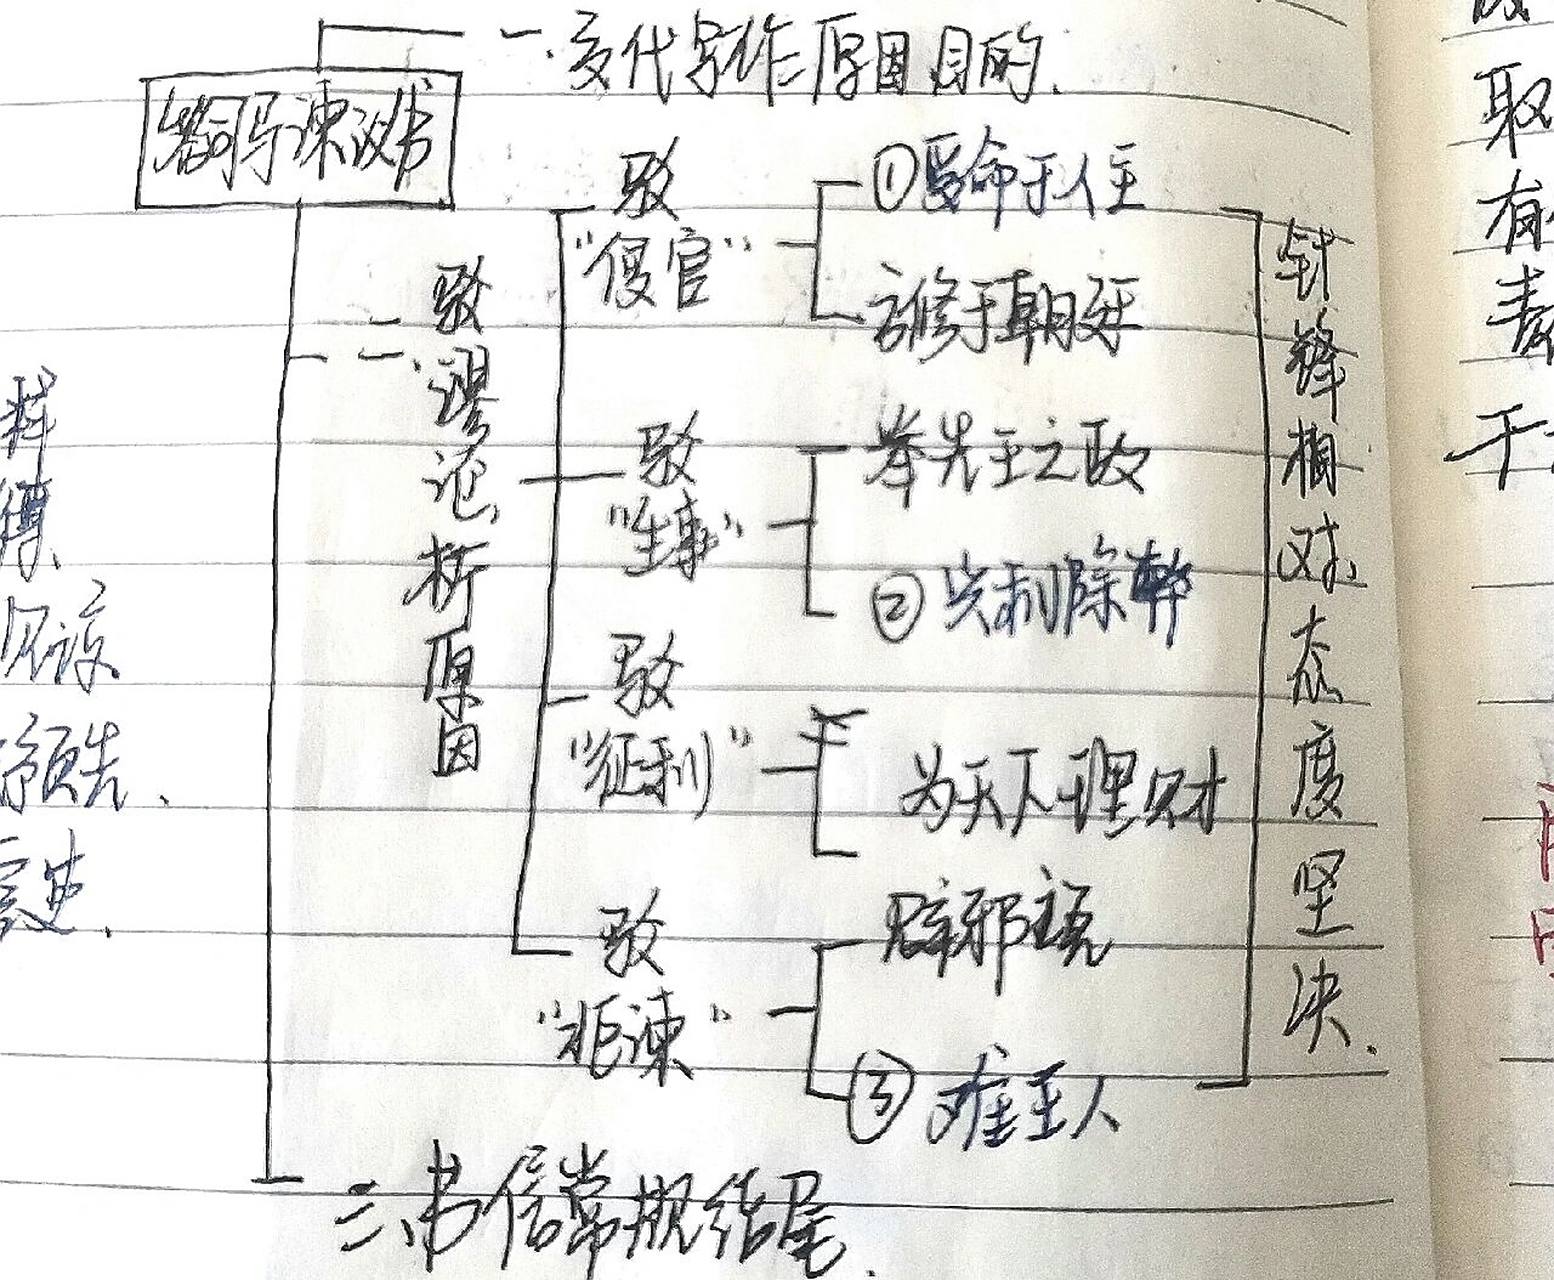 一.交代写作原因目的.
答司马谏议书
二.驳谬论,析原因
驳"侵官"
①受命于人主
议修于朝廷
驳"生事"
举先王之政
②兴利除弊
驳"征利"
为天下理财
驳"拒谏"
辟邪说
③难壬人
针锋相对,态度坚决.
三、书信常规结尾.
取
有
责
干